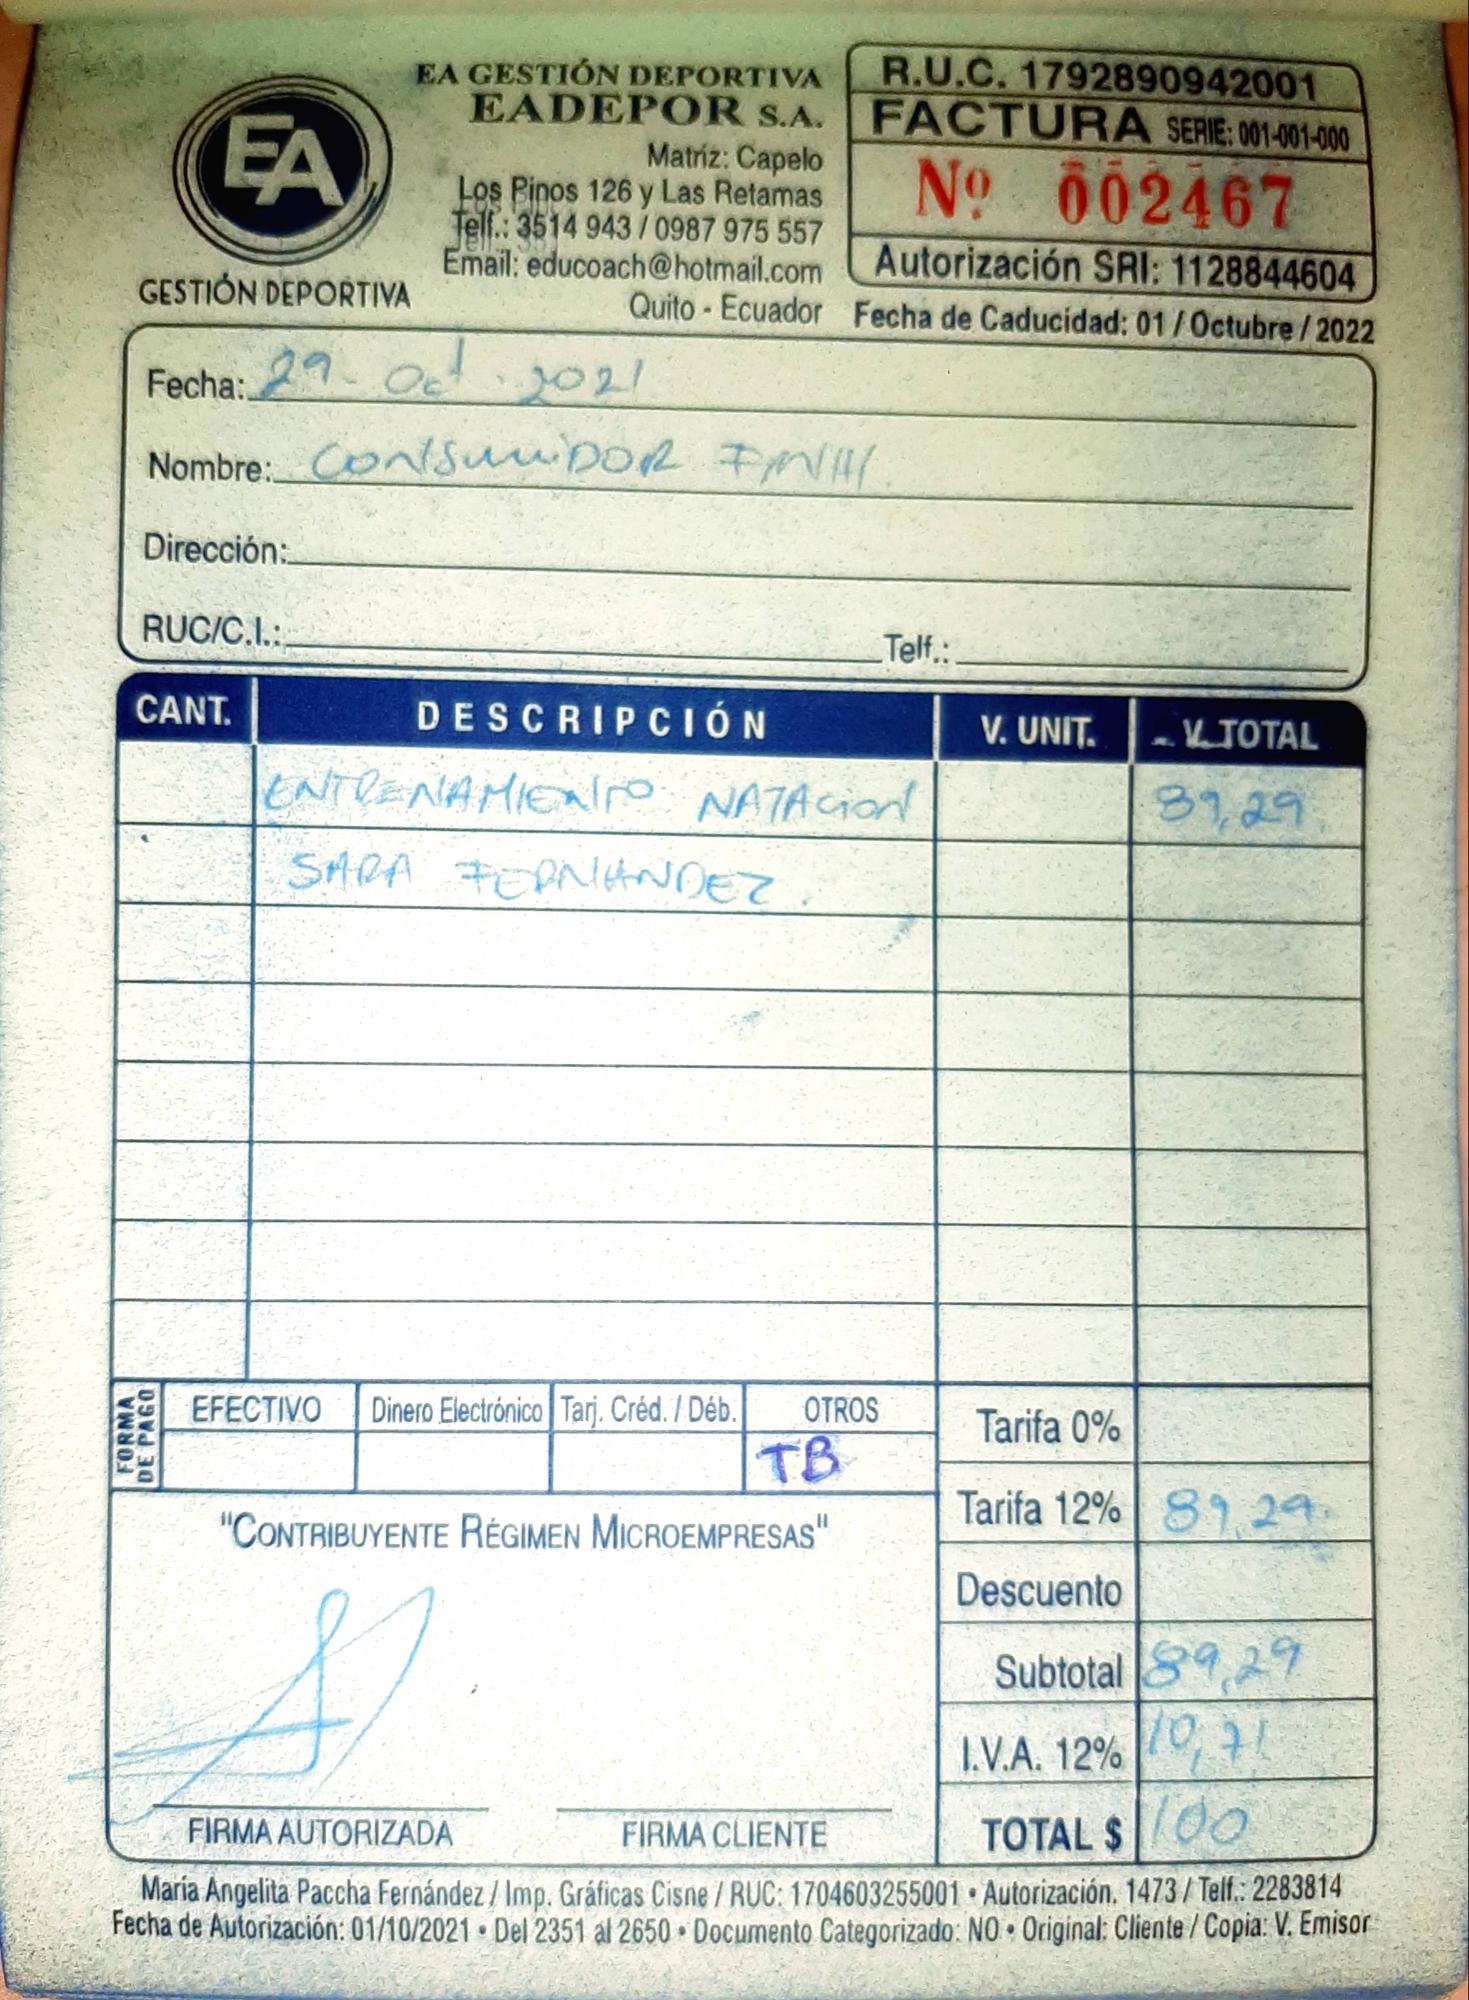 EA
GESTIÓN DEPORTIVA
EA GESTIÓN DEPORTIVA
EADEPOR S.A.
Matríz: Capelo
Los Pinos 126 y Las Retamas
Telf.: 3514 943 / 0987 975 557
Email: educoach@hotmail.com
Quito - Ecuador
R.U.C. 1792890942001
FACTURA SERIE: 001-001-000
Nº 002467
Autorización SRI: 1128844604
Fecha de Caducidad: 01 / Octubre / 2022
Fecha: 29 - Oct . 2021
Nombre: CONSUMIDOR FINAL
Dirección:
RUC/C.I.: Telf.:
CANT. DESCRIPCIÓN V. UNIT. V. TOTAL
ENTRENAMIENTO NATACION 89,29
SARA FERNANDEZ.
FORMA DE PAGO
EFECTIVO Dinero Electrónico Tarj. Créd. / Déb. OTROS
TB
Tarifa 0%
Tarifa 12% 89,29
Descuento
Subtotal 89,29
I.V.A. 12% 10,71
TOTAL $ 100
"CONTRIBUYENTE RÉGIMEN MICROEMPRESAS"
FIRMA AUTORIZADA FIRMA CLIENTE
María Angelita Paccha Fernández / Imp. Gráficas Cisne / RUC: 1704603255001 • Autorización. 1473 / Telf.: 2283814
Fecha de Autorización: 01/10/2021 • Del 2351 al 2650 • Documento Categorizado: NO • Original: Cliente / Copia: V. Emisor